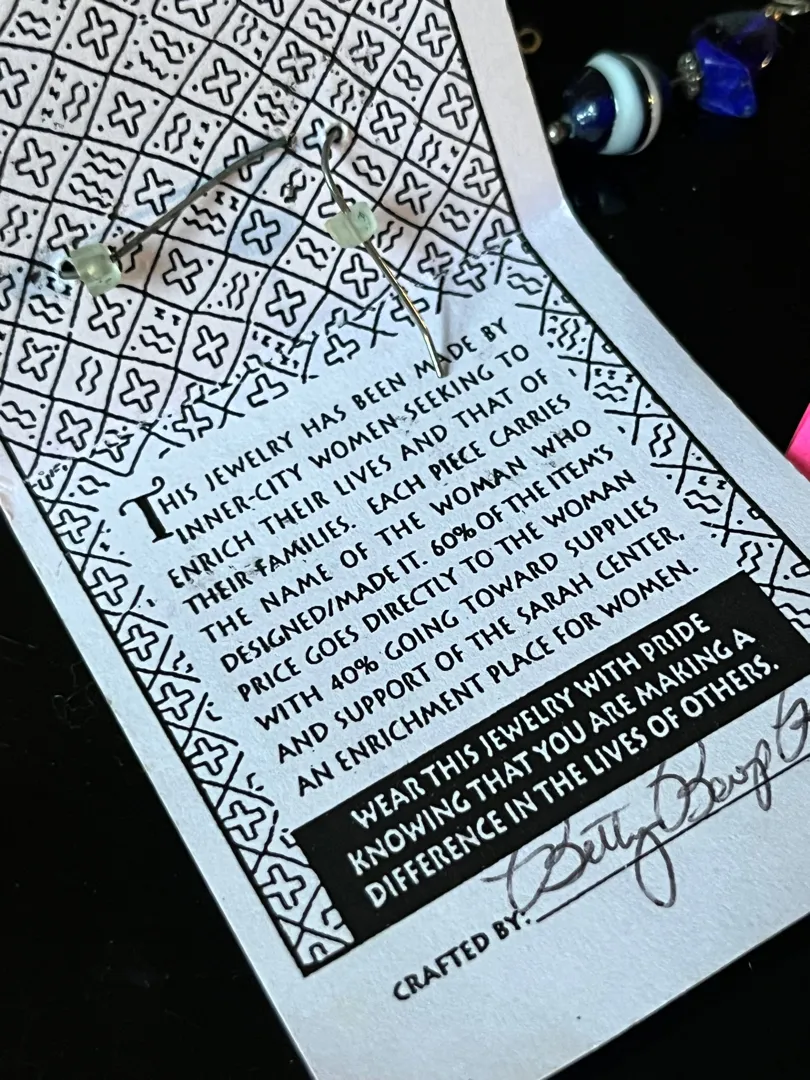 THIS JEWELRY HAS BEEN MADE BY
INNER-CITY WOMEN SEEKING TO
ENRICH THEIR LIVES AND THAT OF
THEIR FAMILIES. EACH PIECE CARRIES
THE NAME OF THE WOMAN WHO
DESIGNED/MADE IT. 60% OF THE ITEM'S
PRICE GOES DIRECTLY TO THE WOMAN
WITH 40% GOING TOWARD SUPPLIES
AND SUPPORT OF THE SARAH CENTER,
AN ENRICHMENT PLACE FOR WOMEN.
WEAR THIS JEWELRY WITH PRIDE
KNOWING THAT YOU ARE MAKING A
DIFFERENCE IN THE LIVES OF OTHERS.
CRAFTED BY: Betty